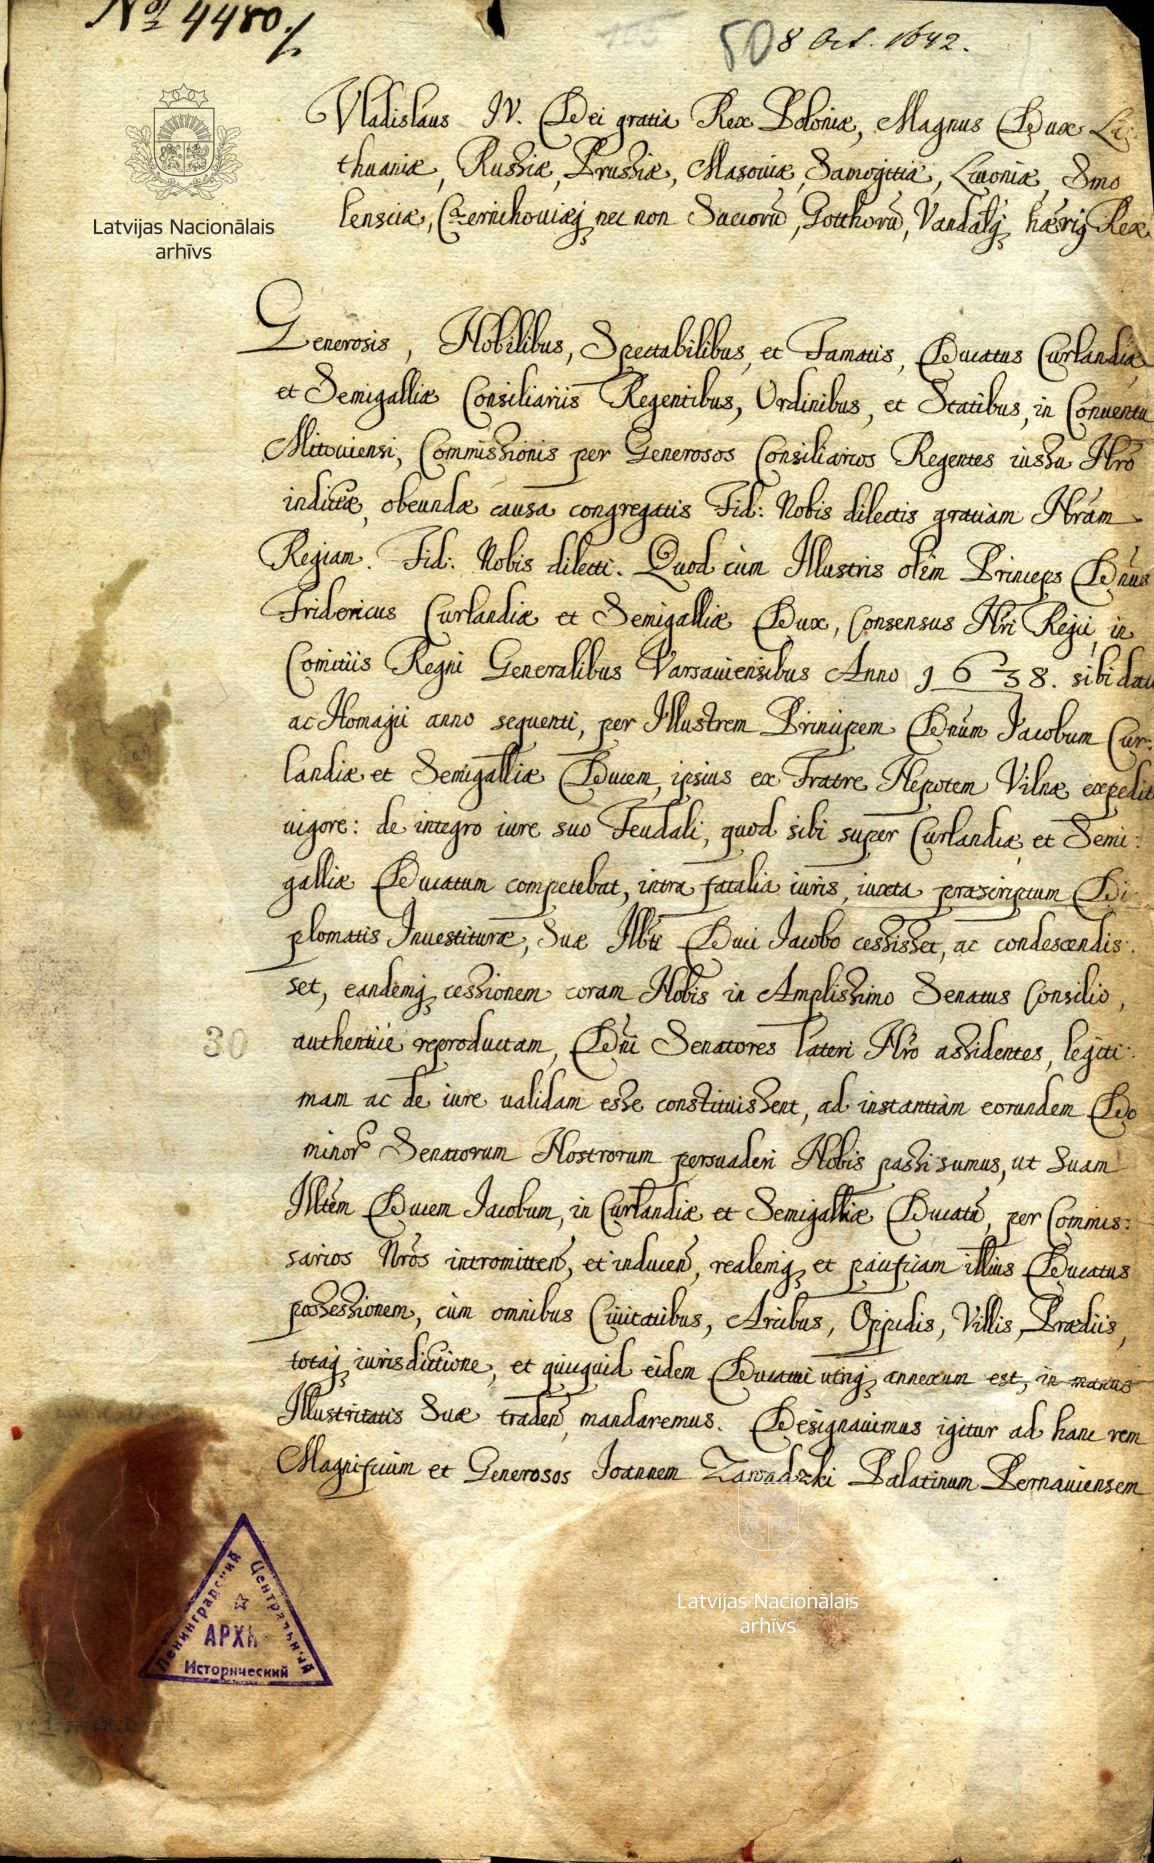 No 4480./.
105
50
8 Oct. 1642.
Latvijas Nacionālais
arhīvs
Vladislaus IV. Dei gratia Rex Poloniæ, Magnus Dux Li:
thuaniæ, Russiæ, Prussiæ, Masoviæ, Samogitiæ, Livoniæ, Smo
lensciæ, Czernichoviæq; nec non Suecorū, Gotthorū, Vandalq; hæriq; Rex
Generosis, Nobilibus, Spectabilibus, et Famatis, Ducatus Curlandiæ
et Semigalliæ Consiliariis Regentibus, Ordinibus, et Statibus, in Conuentu
Mitouiensi, Commissionis per Generosos Consiliarios Regentes iussu Nrō
indictæ, obeundæ causa congregatis Fid: Nobis dilectis gratiam Nrām
Regiam. Fid: Nobis dilecti. Quod cùm Illustris olim Princeps Dn̄us
Fridericus Curlandiæ et Semigalliæ Dux, Consensus Nrī Regii, in
Comitiis Regni Generalibus Varsauiensibus Anno 1638. sibi dati
ac Homagii anno sequenti, per Illustrem Principem Dn̄um Jacobum Cur:
landiæ et Semigalliæ Ducem, ipsius ex Fratre Nepotem Vilnæ expediti
uigore: de integro iure suo Feudali, quod sibi super Curlandiæ et Semi:
galliæ Ducatum competebat, intra fatalia iuris, iuxta præscriptum Di
plomatis Inuestituræ, Suæ Illtī Duci Jacobo cessisset, ac condescendis:
set, eandemq; cessionem coram Nobis in Amplissimo Senatus Consilio,
30
authenticè reproductam, Dn̄i Senatores lateri Nrō assidentes, legiti:
mam ac de iure ualidam esse constituissent, ad instantiam eorundem Do
minorū Senatorum Nostrorum persuaderi Nobis passi sumus, ut Suam
Illtēm Ducem Jacobum, in Curlandiæ et Semigalliæ Ducatū, per Commis:
sarios Nrōs intromitten̄, et inducen̄, realemq; et pacificam illius Ducatus
possessionem, cùm omnibus Ciuitatibus, Arcibus, Oppidis, Villis, Prædiis,
totaq; iurisdictione, et quicquid eidem Ducatui utriq; annexum est, in manus
Illustritatis Suæ traden̄, mandaremus. Designauimus igitur ad hanc rem
Magnificum et Generosos Joannem Zawadzki Palatinum Pernauiensem
Ленинградский
Центральный
АРХИ
Исторический
Latvijas Nacionālais
arhīvs